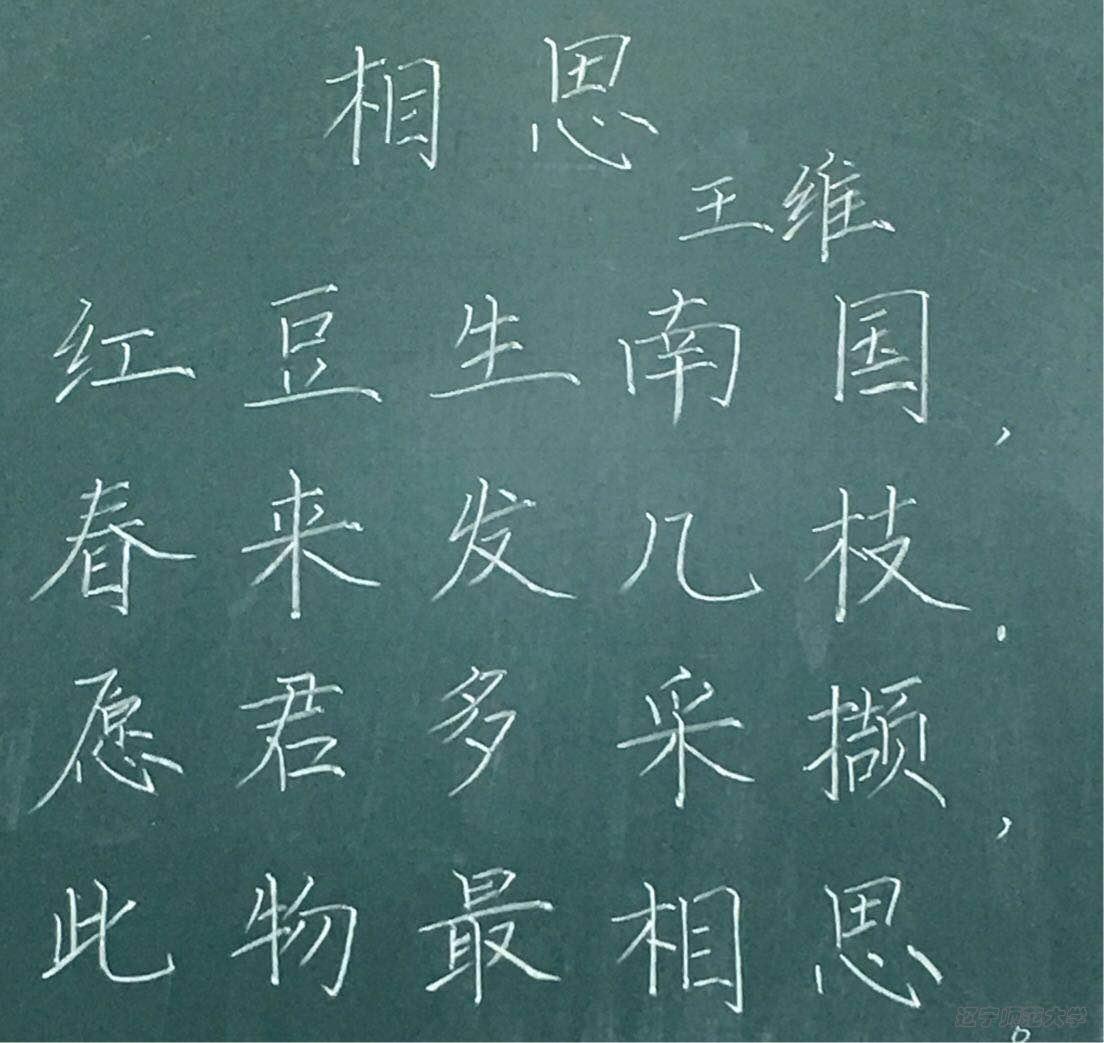 相思
王维
红豆生南国，
春来发几枝．
愿君多采撷，
此物最相思。
辽宁师范大学